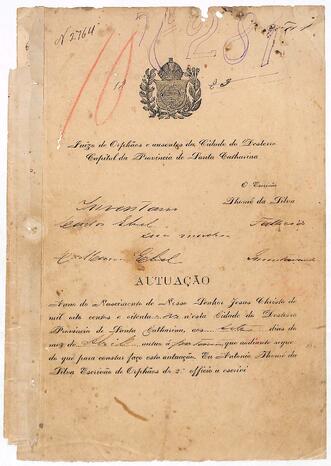 N 2764
10
Nº 281
18
Juizo de Orphãos e ausentes da Cidade do Desterro
Capital da Provincia de Santa Catharina
O Escrivão
Thomé da Silva
Inventario
Carlos Ebel
sua mulher
Ebel
AUTUAÇÃO
Anno do Nascimento de Nosso Senhor Jesus Christo de
mil oito centos e oitenta n'esta Cidade do Desterro
Provincia de Santa Catharina, aos dias do
mez de Abril autuo a que adiante segue
do que para constar faço esta autuação. Eu Antonio Thomé da
Silva Escrivão de Orphãos do 2º officio a escrevi